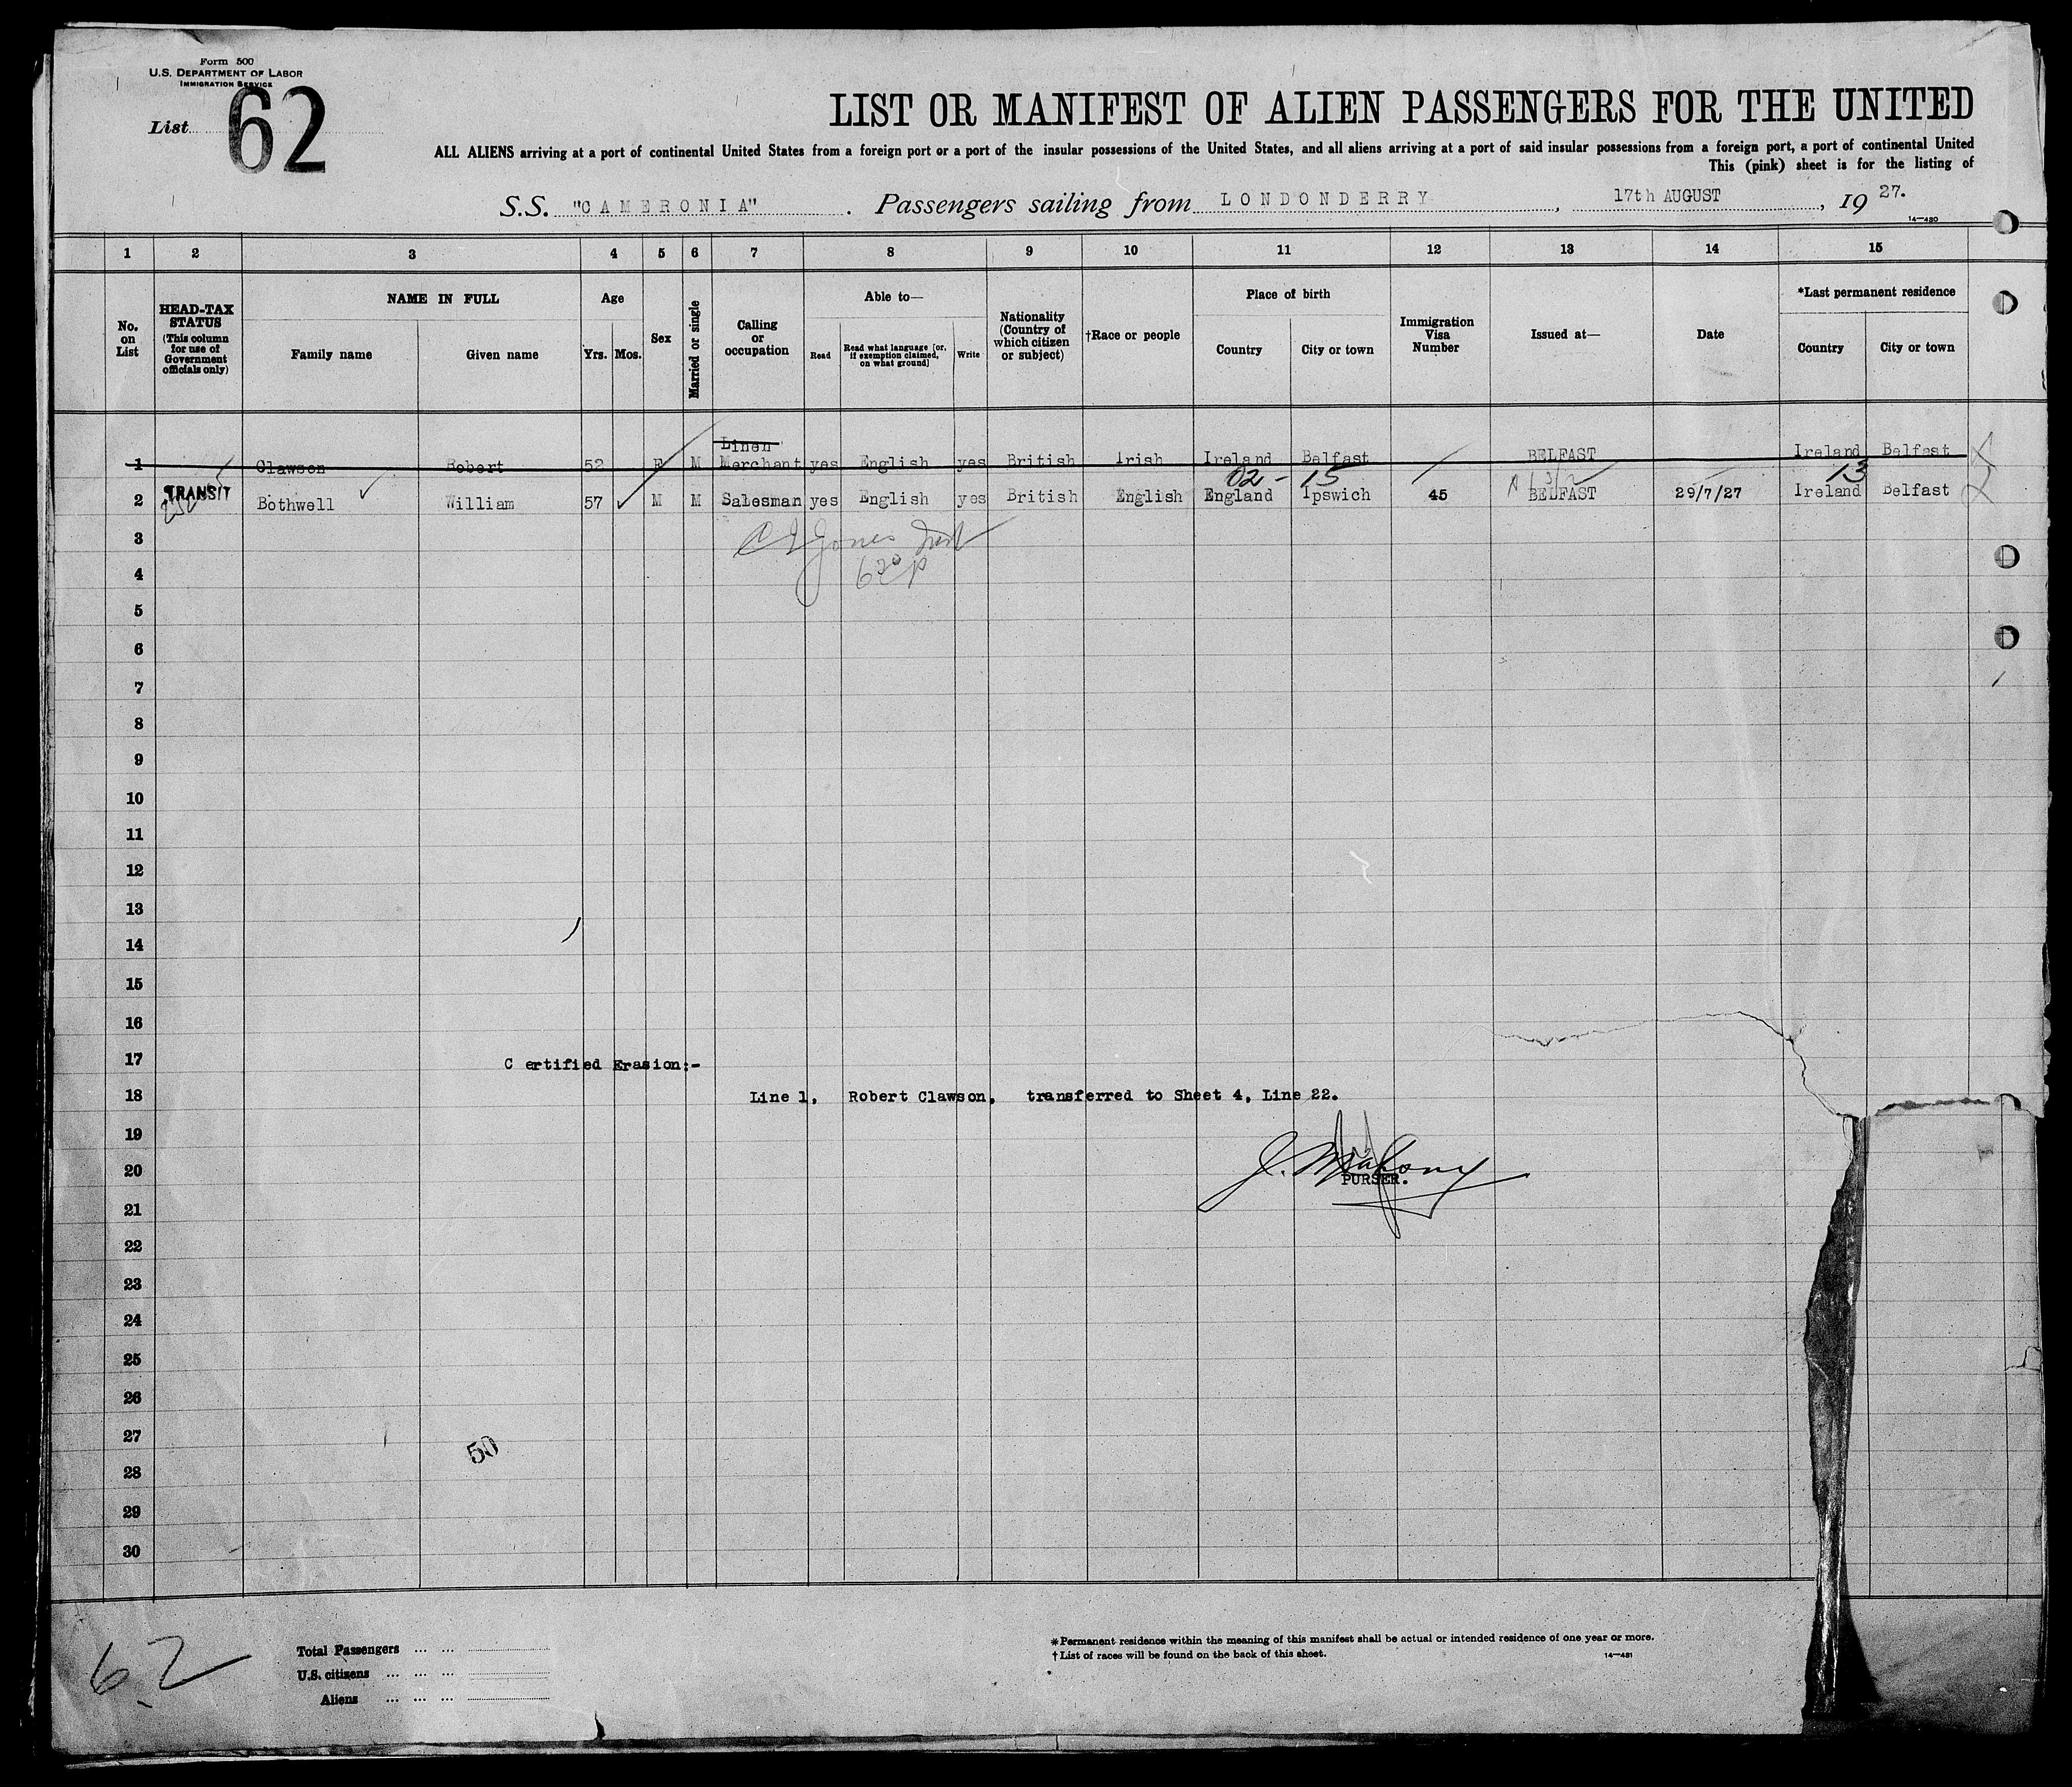 Form 500
U.S. DEPARTMENT OF LABOR
IMMIGRATION SERVICE
List 62
LIST OR MANIFEST OF ALIEN PASSENGERS FOR THE UNITED
ALL ALIENS arriving at a port of continental United States from a foreign port or a port of the insular possessions of the United States, and all aliens arriving at a port of said insular possessions from a foreign port, a port of continental United
This (pink) sheet is for the listing of
S.S. "CAMERONIA" . Passengers sailing from LONDONDERRY , 17th AUGUST , 19 27.
14—480
1 2 3 4 5 6 7 8 9 10 11 12 13 14 15
No. on List
HEAD-TAX STATUS (This column for use of Government officials only)
NAME IN FULL
Family name Given name
Age
Yrs. Mos.
Sex
Married or single
Calling or occupation
Able to—
Read Read what language [or, if exemption claimed, on what ground] Write
Nationality (Country of which citizen or subject)
†Race or people
Place of birth
Country City or town
Immigration Visa Number
Issued at—
Date
*Last permanent residence
Country City or town
Linen
1 Clawson Robert 52 M Merchant yes English yes British Irish Ireland Belfast BELFAST Ireland Belfast
02 - 15 13
2 TRANSIT Bothwell William 57 M M Salesman yes English yes British English England Ipswich 45 BELFAST 29/7/27 Ireland Belfast
3
4
5
6
7
8
9
10
11
12
13
14
15
16
17 Certified Erasion:-
18 Line 1, Robert Clawson, transferred to Sheet 4, Line 22.
19
20 J. Mahony
PURSER.
21
22
23
24
25
26
27
50
28
29
30
62
Total Passengers ... ...
U.S. citizens ... ... ...
Aliens ... ... ...
*Permanent residence within the meaning of this manifest shall be actual or intended residence of one year or more.
†List of races will be found on the back of this sheet.
14—481